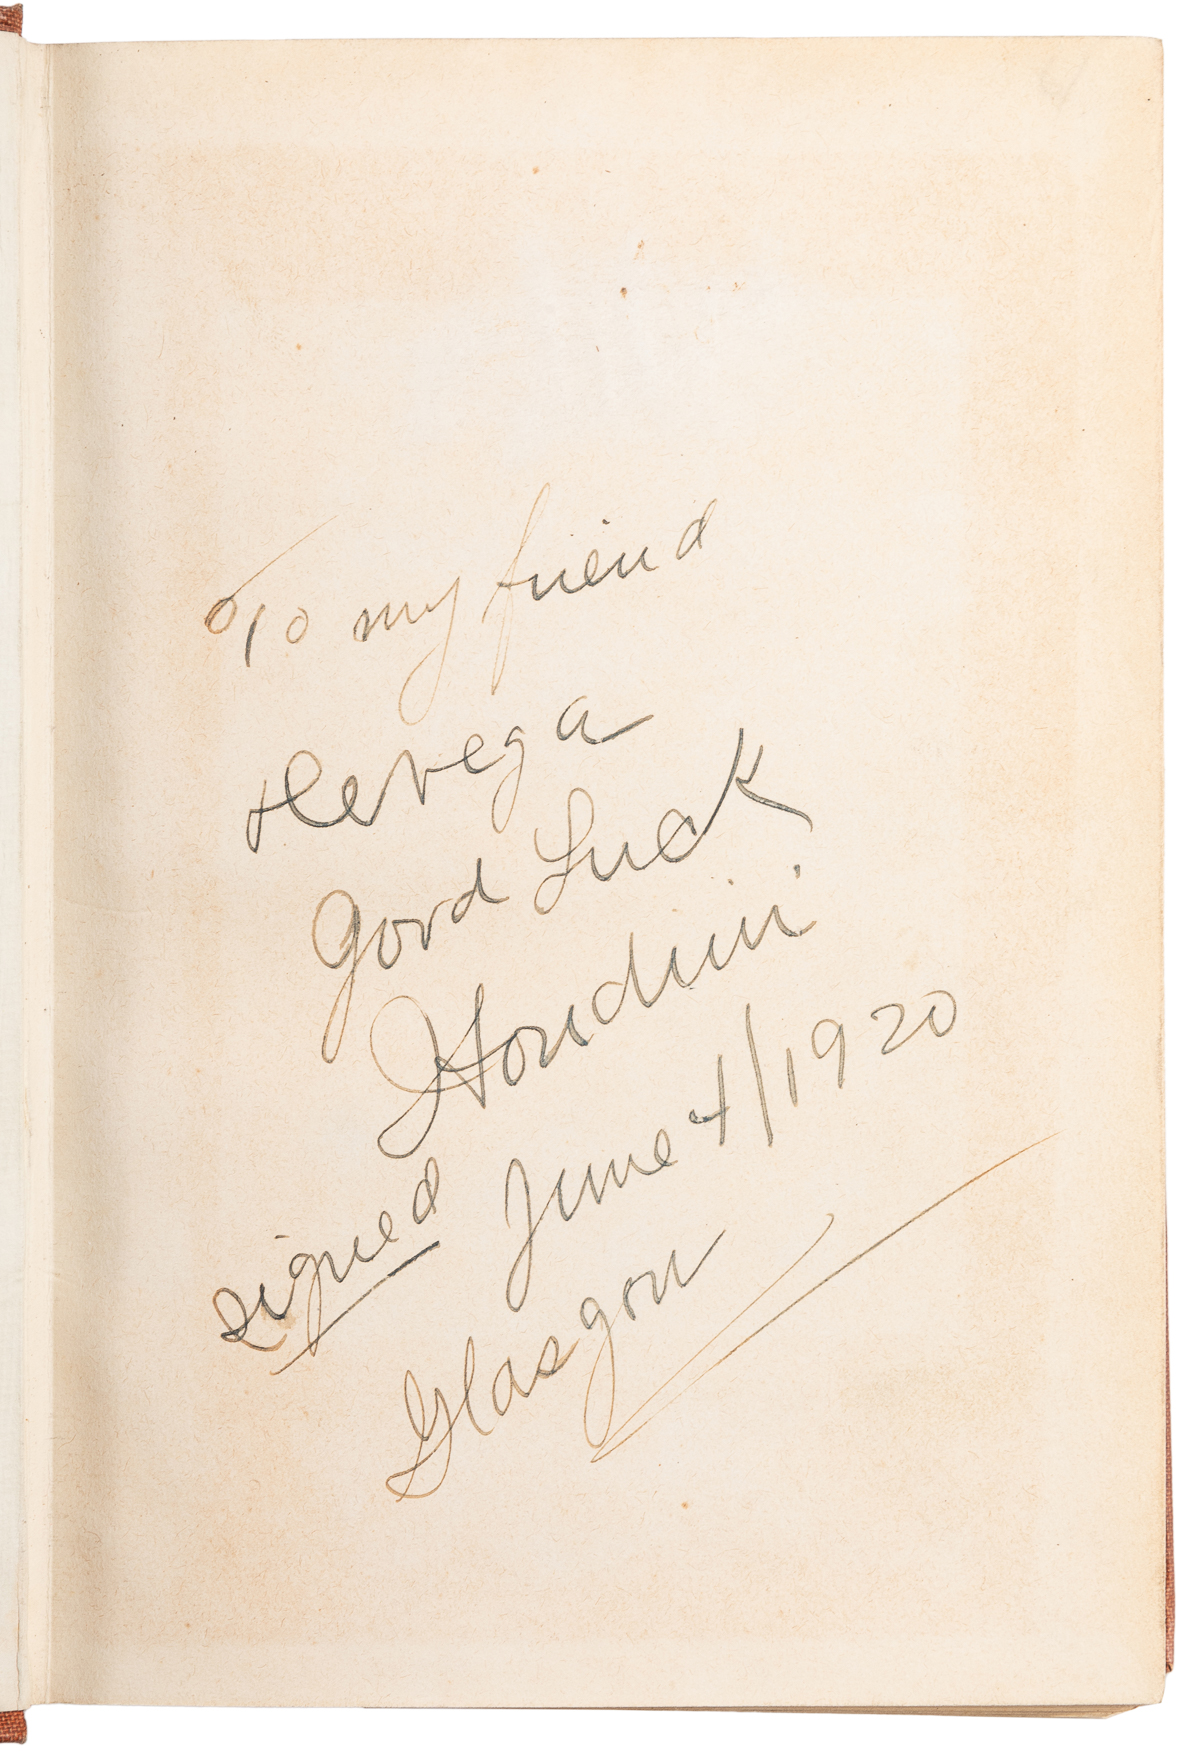 To my friend
Devega
Good Luck
Houdini
signed June 4/1920
Glasgow